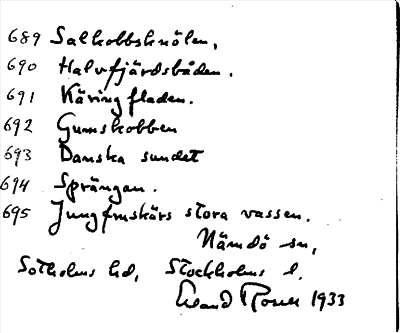 689 Salkobbsknölen.
690 Halvfjärdsbåden.
691 Käringfladen.
692 Gumskobben
693 Danska sundet
694 Sprängan.
695 Jungfruskärs stora vassen.
Nämdö sn,
Sotholms hd, Stockholms l.
Erland Rosell 1933